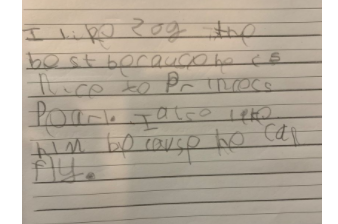 I like Zog the
best because he is
Nice to Princess
Pearl. I also like
him because he can
fly.